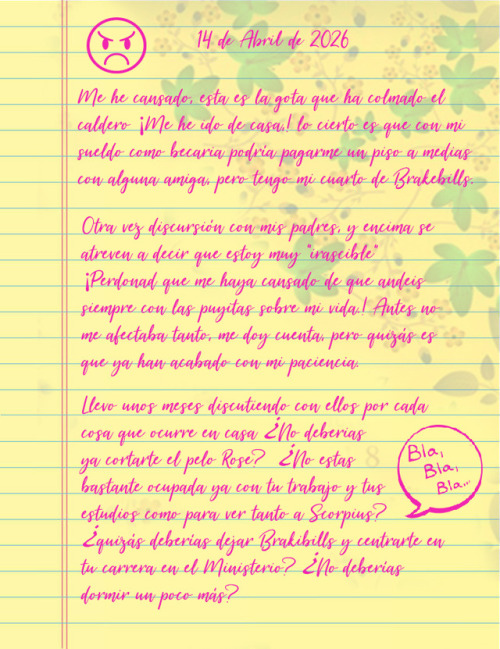 14 de Abril de 2026
Me he cansado, esta es la gota que ha colmado el
caldero ¡Me he ido de casa,! lo cierto es que con mi
sueldo como becaria podría pagarme un piso a medias
con alguna amiga, pero tengo mi cuarto de Brakebills.
Otra vez discursión con mis padres, y encima se
atreven a decir que estoy muy "irascible"
¡Perdonad que me haya cansado de que andeis
siempre con las puyitas sobre mi vida,! Antes no
me afectaba tanto, me doy cuenta, pero quizás es
que ya han acabado con mi paciencia.
Llevo unos meses discutiendo con ellos por cada
cosa que ocurre en casa ¿No deberías
ya cortarte el pelo Rose? ¿No estas
bastante ocupada ya con tu trabajo y tus
estudios como para ver tanto a Scorpius?
¿quizás deberías dejar Brakibills y centrarte en
tu carrera en el Ministerio? ¿No deberías
dormir un poco más?
Bla,
Bla,
Bla...